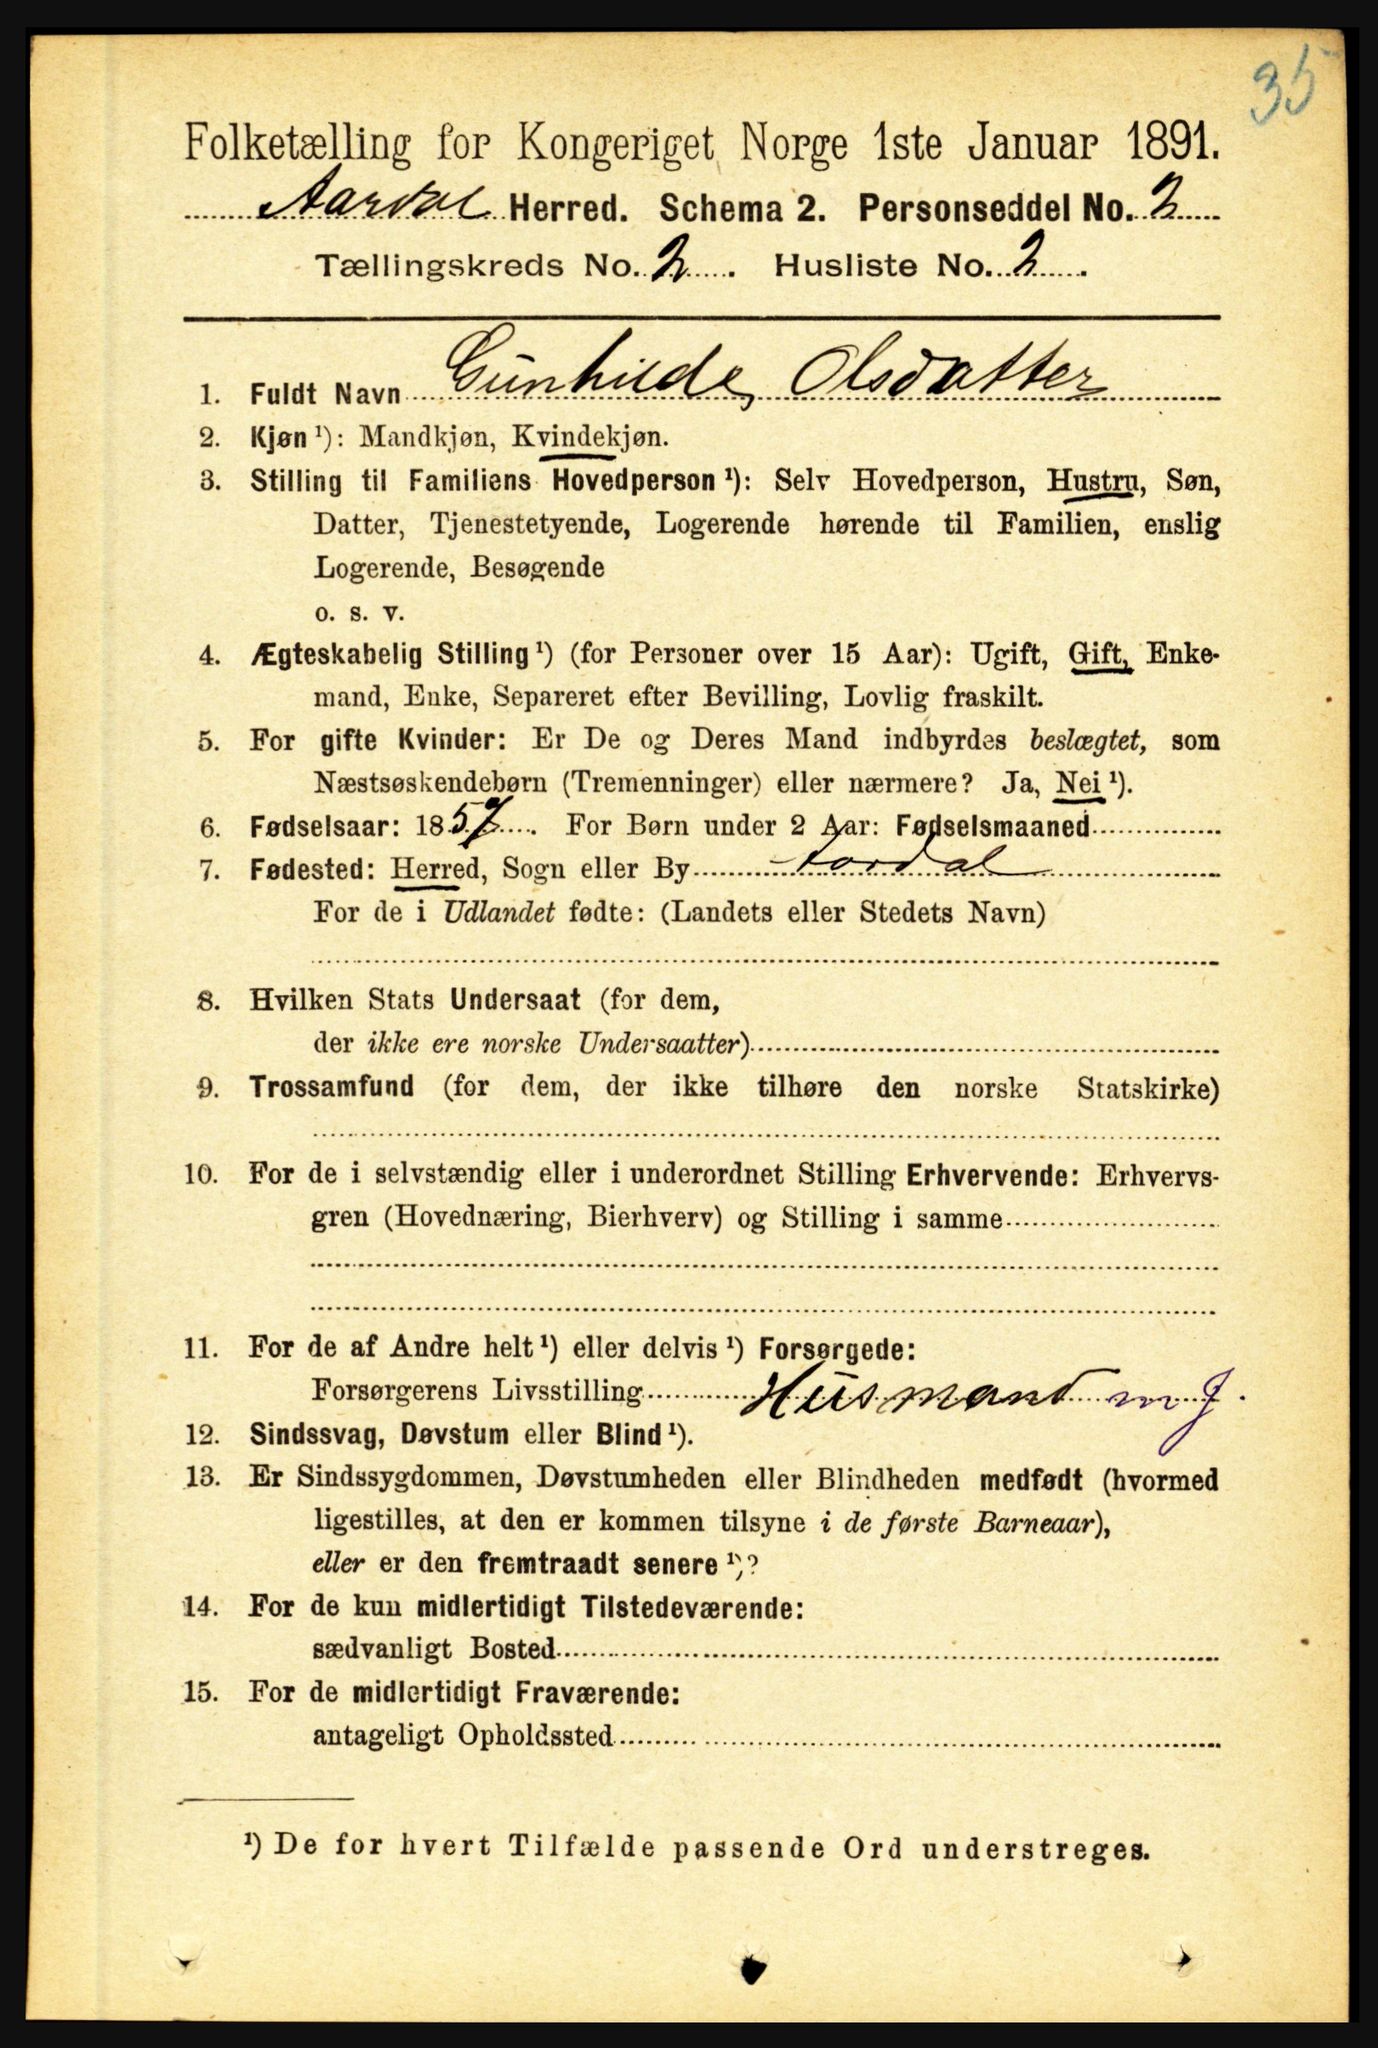 35
Folketælling for Kongeriget Norge 1ste Januar 1891.
Aardal Herred. Schema 2. Personseddel No. 2
Tællingskreds No. 2. Husliste No. 2.
1. Fuldt Navn Gunhilde Olsdatter
2. Kjøn ¹): Mandkjøn, Kvindekjøn.
3. Stilling til Familiens Hovedperson ¹): Selv Hovedperson, Hustru, Søn,
Datter, Tjenestetyende, Logerende hørende til Familien, enslig
Logerende, Besøgende
o. s. v.
4. Ægteskabelig Stilling ¹) (for Personer over 15 Aar): Ugift, Gift, Enke-
mand, Enke, Separeret efter Bevilling, Lovlig fraskilt.
5. For gifte Kvinder: Er De og Deres Mand indbyrdes beslægtet, som
Næstsøskendebørn (Tremenninger) eller nærmere? Ja, Nei ¹).
6. Fødselsaar: 1857. For Børn under 2 Aar: Fødselsmaaned
7. Fødested: Herred, Sogn eller By Aardal
For de i Udlandet fødte: (Landets eller Stedets Navn)
8. Hvilken Stats Undersaat (for dem,
der ikke ere norske Undersaatter)
9. Trossamfund (for dem, der ikke tilhøre den norske Statskirke)
10. For de i selvstændig eller i underordnet Stilling Erhvervende: Erhvervs-
gren (Hovednæring, Bierhverv) og Stilling i samme
11. For de af Andre helt ¹) eller delvis ¹) Forsørgede:
Forsørgerens Livsstilling Husmand m J.
12. Sindssvag, Døvstum eller Blind ¹).
13. Er Sindssygdommen, Døvstumheden eller Blindheden medfødt (hvormed
ligestilles, at den er kommen tilsyne i de første Barneaar),
eller er den fremtraadt senere ¹)?
14. For de kun midlertidigt Tilstedeværende:
sædvanligt Bosted
15. For de midlertidigt Fraværende:
antageligt Opholdssted
¹) De for hvert Tilfælde passende Ord understreges.